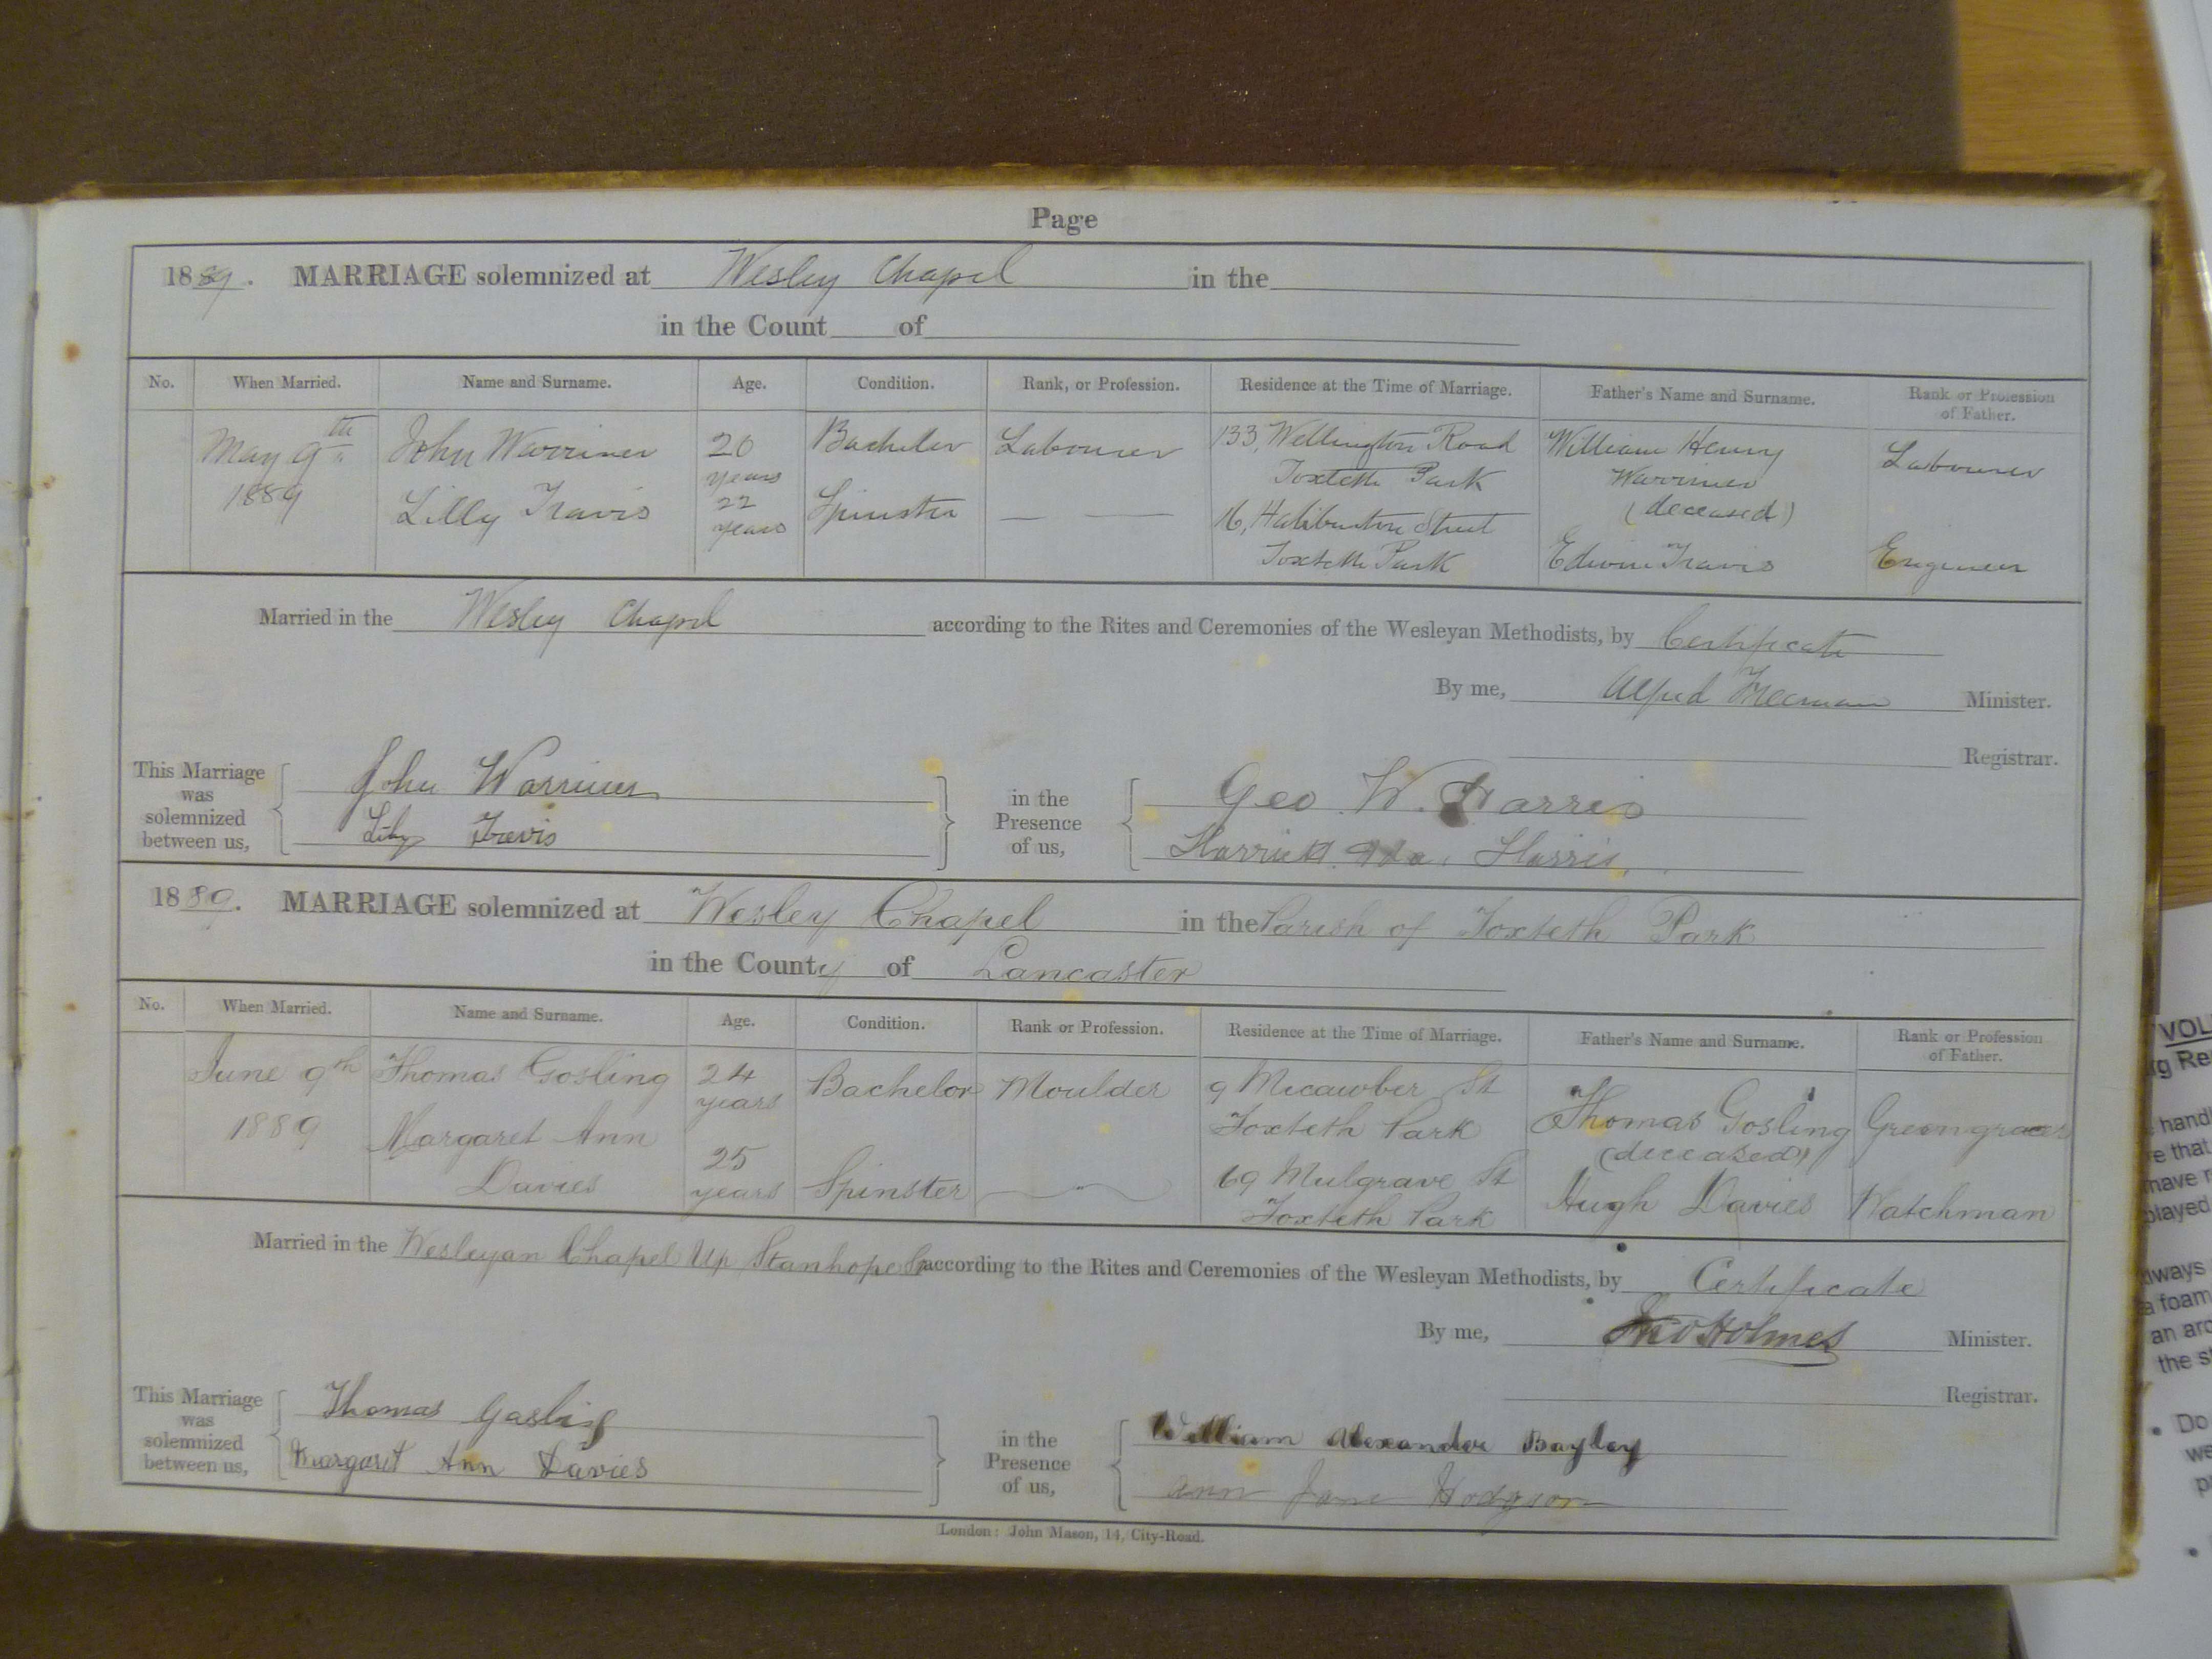 Page
1889. MARRIAGE solemnized at Wesley Chapel in the
in the Count of
No. When Married. Name and Surname. Age. Condition. Rank, or Profession. Residence at the Time of Marriage. Father's Name and Surname. Rank or Profession of Father.
May 9th John Warriner 20 years Bachelor Labourer 133, Wellington Road Toxteth Park William Henry Warriner (deceased) Labourer
1889 Lilly Travis 22 years Spinster — — 16, Haliburton Street Toxteth Park Edwin Travis Engineer
Married in the Wesley Chapel according to the Rites and Ceremonies of the Wesleyan Methodists, by Certificate
By me, Alfred Freeman Minister.
Registrar.
This Marriage was solemnized between us, John Warriner
Lily Travis
in the Presence of us, Geo. W. Harris
Harriett Ada Harris
1889. MARRIAGE solemnized at Wesley Chapel in the Parish of Toxteth Park
in the County of Lancaster
No. When Married. Name and Surname. Age. Condition. Rank or Profession. Residence at the Time of Marriage. Father's Name and Surname. Rank or Profession of Father.
June 9th Thomas Gosling 24 years Bachelor Moulder 9 Micawber St Toxteth Park Thomas Gosling (deceased) Greengrocer
1889 Margaret Ann Davies 25 years Spinster — 69 Mulgrave St Toxteth Park Hugh Davies Watchman
Married in the Wesleyan Chapel Up Stanhope St according to the Rites and Ceremonies of the Wesleyan Methodists, by Certificate
By me, Jno Holmes Minister.
Registrar.
This Marriage was solemnized between us, Thomas Gosling
Margaret Ann Davies
in the Presence of us, William Alexander Bayley
Ann Jane Hodgson
London: John Mason, 14, City-Road.